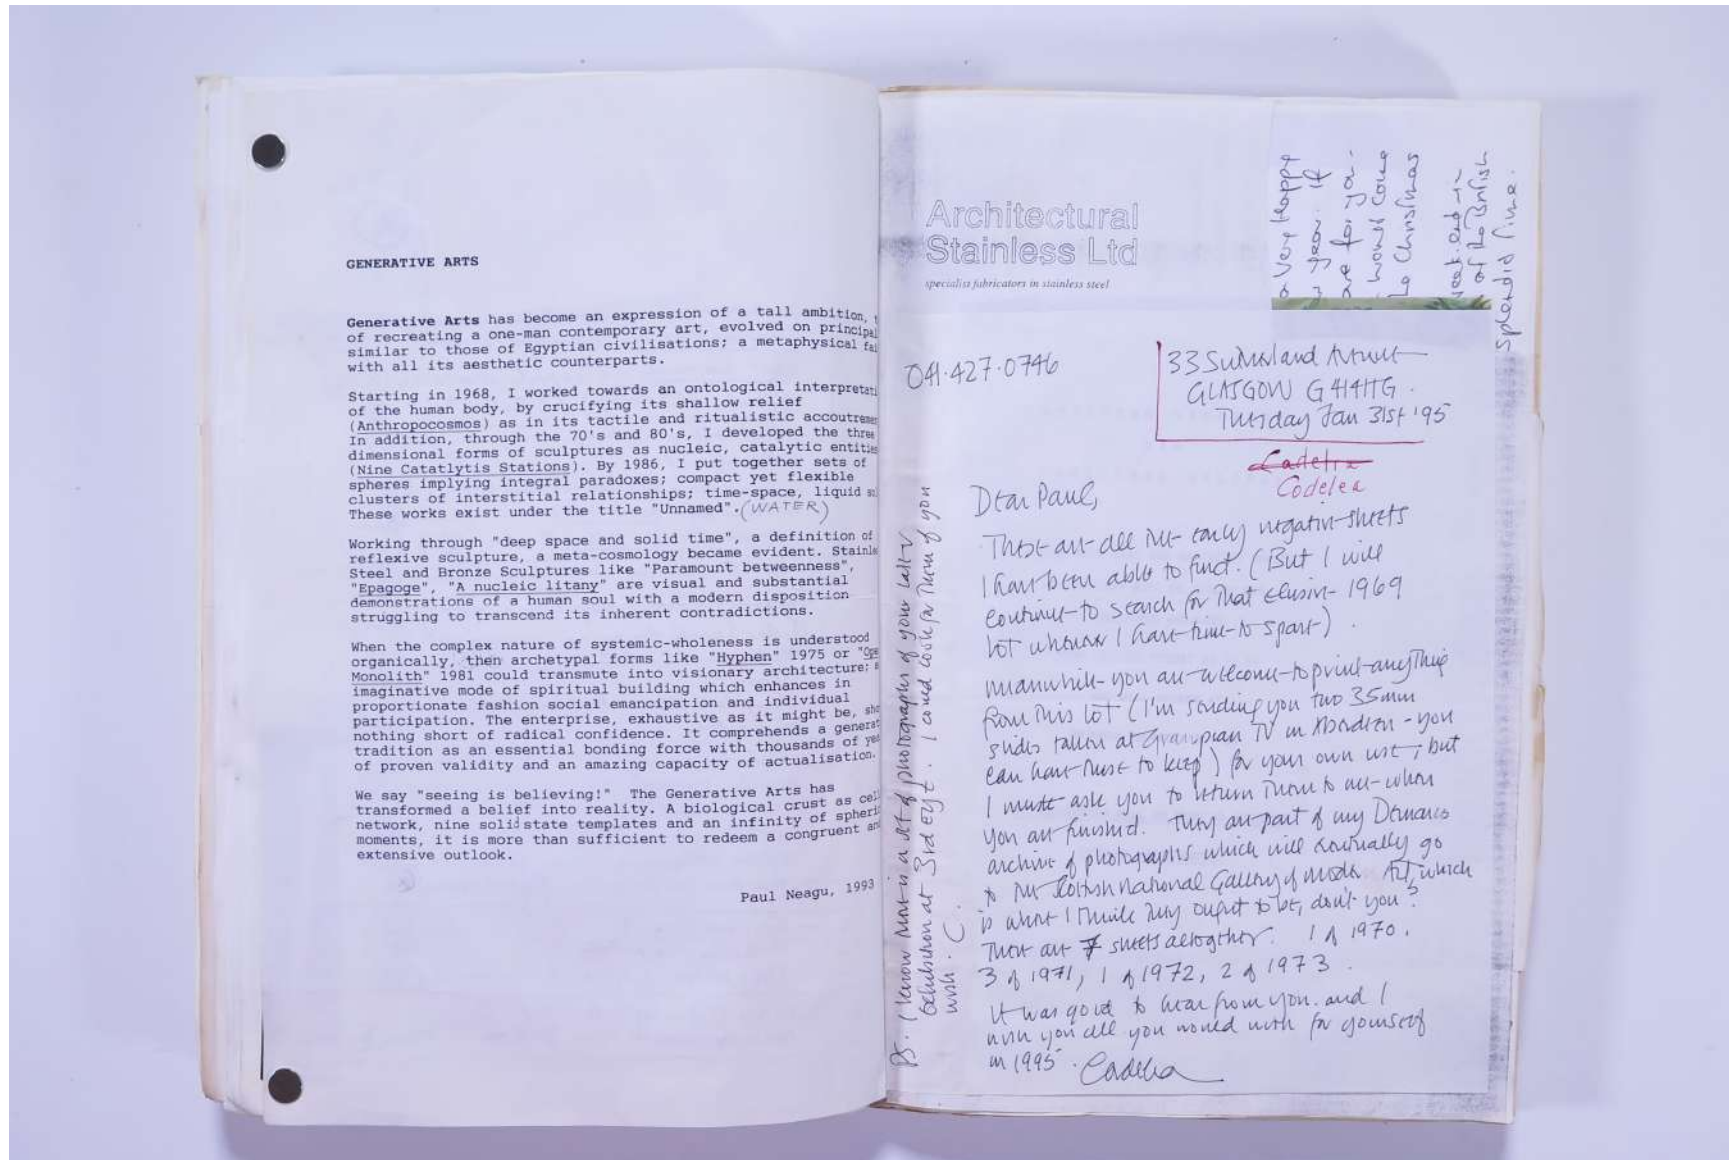 GENERATIVE ARTS
Generative Arts has become an expression of a tall ambition,
of recreating a one-man contemporary art, evolved on principal
similar to those of Egyptian civilisations; a metaphysical
with all its aesthetic counterparts.
Starting in 1968, I worked towards an ontological interpretati
of the human body, by crucifying its shallow relief
(Anthropocosmos) as in its tactile and ritualistic accoutremen
In addition, through the 70's and 80's, I developed the three
dimensional forms of sculptures as nucleic, catalytic entitie
(Nine Catatlytis Stations). By 1986, I put together sets of
spheres implying integral paradoxes; compact yet flexible
clusters of interstitial relationships; time-space, liquid
These works exist under the title "Unnamed". (WATER)
Working through "deep space and solid time", a definition of
reflexive sculpture, a meta-cosmology became evident. Stainle
Steel and Bronze Sculptures like "Paramount betweenness",
"Epagoge", "A nucleic litany" are visual and substantial
demonstrations of a human soul with a modern disposition
struggling to transcend its inherent contradictions.
When the complex nature of systemic-wholeness is understood
organically, then archetypal forms like "Hyphen" 1975 or "Ope
Monolith" 1981 could transmute into visionary architecture;
imaginative mode of spiritual building which enhances in
proportionate fashion social emancipation and individual
participation. The enterprise, exhaustive as it might be, sho
nothing short of radical confidence. It comprehends a generat
tradition as an essential bonding force with thousands of yea
of proven validity and an amazing capacity of actualisation.
We say "seeing is believing!" The Generative Arts has
transformed a belief into reality. A biological crust as cel
network, nine solid state templates and an infinity of spheri
moments, it is more than sufficient to redeem a congruent and
extensive outlook.
Paul Neagu, 1993
Architectural
Stainless Ltd
specialist fabricators in stainless steel
a Very Happy
year. If
are for you.
would come
Christmas
of the British
splendid time.
041.427.0746
33 Sutherland Avenue
GLASGOW G41 4HG.
Tuesday Jan 31st '95
Codelea
Dear Paul,
These are all the early negative sheets
I have been able to find. (But I will
continue to search for that elusive 1969
lot whenever I have time to spare).
Meanwhile you are welcome to print anything
from this lot (I'm sending you two 35mm
slides taken at Grampian TV in Aberdeen - you
can have these to keep) for your own use, but
I must ask you to return them to me when
you are finished. They are part of my Demarco
archive of photographs which will eventually go
to the Scottish National Gallery of Modern Art, which
is where I think they ought to be, don't you?
There are 7 sheets altogether. 1 of 1970,
3 of 1971, 1 of 1972, 2 of 1973.
It was good to hear from you and I
wish you all you would wish for yourself
in 1995.
PS. I know there is a lot of photographs of your later
exhibition at 3rd eye. I could look for them if you
wish. C.